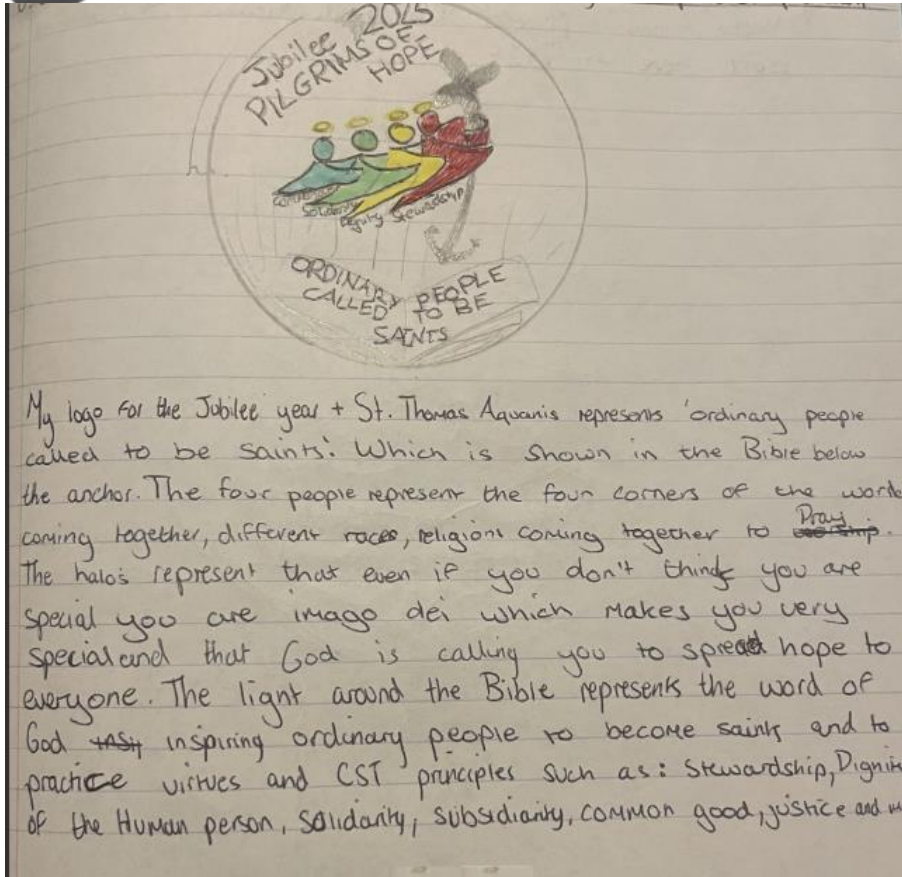 Jubilee 2025
PILGRIMS OF
HOPE
Solidarity
Stewardship
ORDINARY PEOPLE
CALLED TO BE
SAINTS
My logo for the Jubilee year + St. Thomas Aquanis represents 'ordinary people
called to be saints'. Which is shown in the Bible below
the anchor. The four people represent the four corners of the world
coming together, different races, religions coming together to Pray.
The halo's represent that even if you don't think you are
special you are imago dei which makes you very
special and that God is calling you to spread hope to
everyone. The light around the Bible represents the word of
God inspiring ordinary people to become saints and to
practice virtues and CST principles such as: Stewardship, Dignit
of the Human person, Solidarity, Subsidiarity, common good, justice and